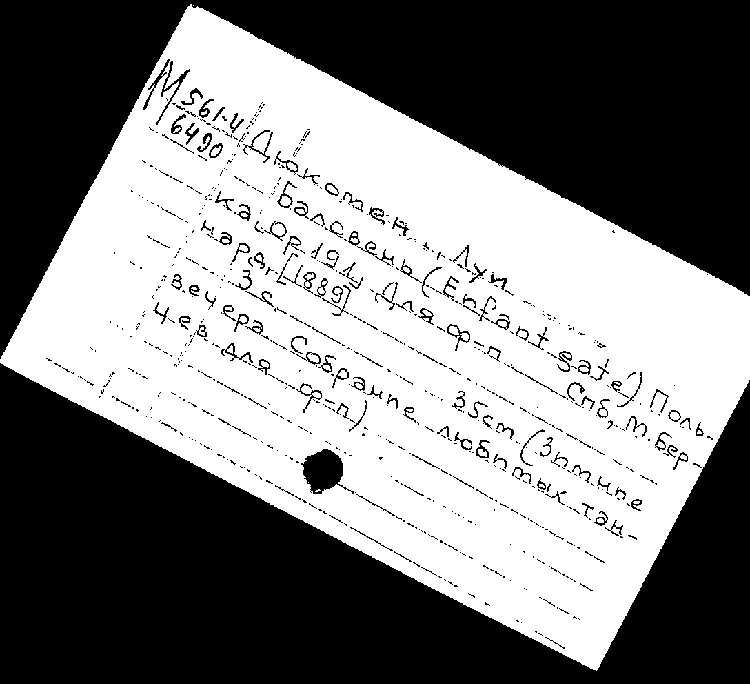 М 561-4
6490
Дюкомен, Луи
Баловень (Enfant gate). Поль-
ка. Op. 191. Для ф-п. Спб, М. Бер-
нард, [1889]
3 с. 35 cm. (Зимние
вечера. Собрание любимых тан-
цев для ф-п).